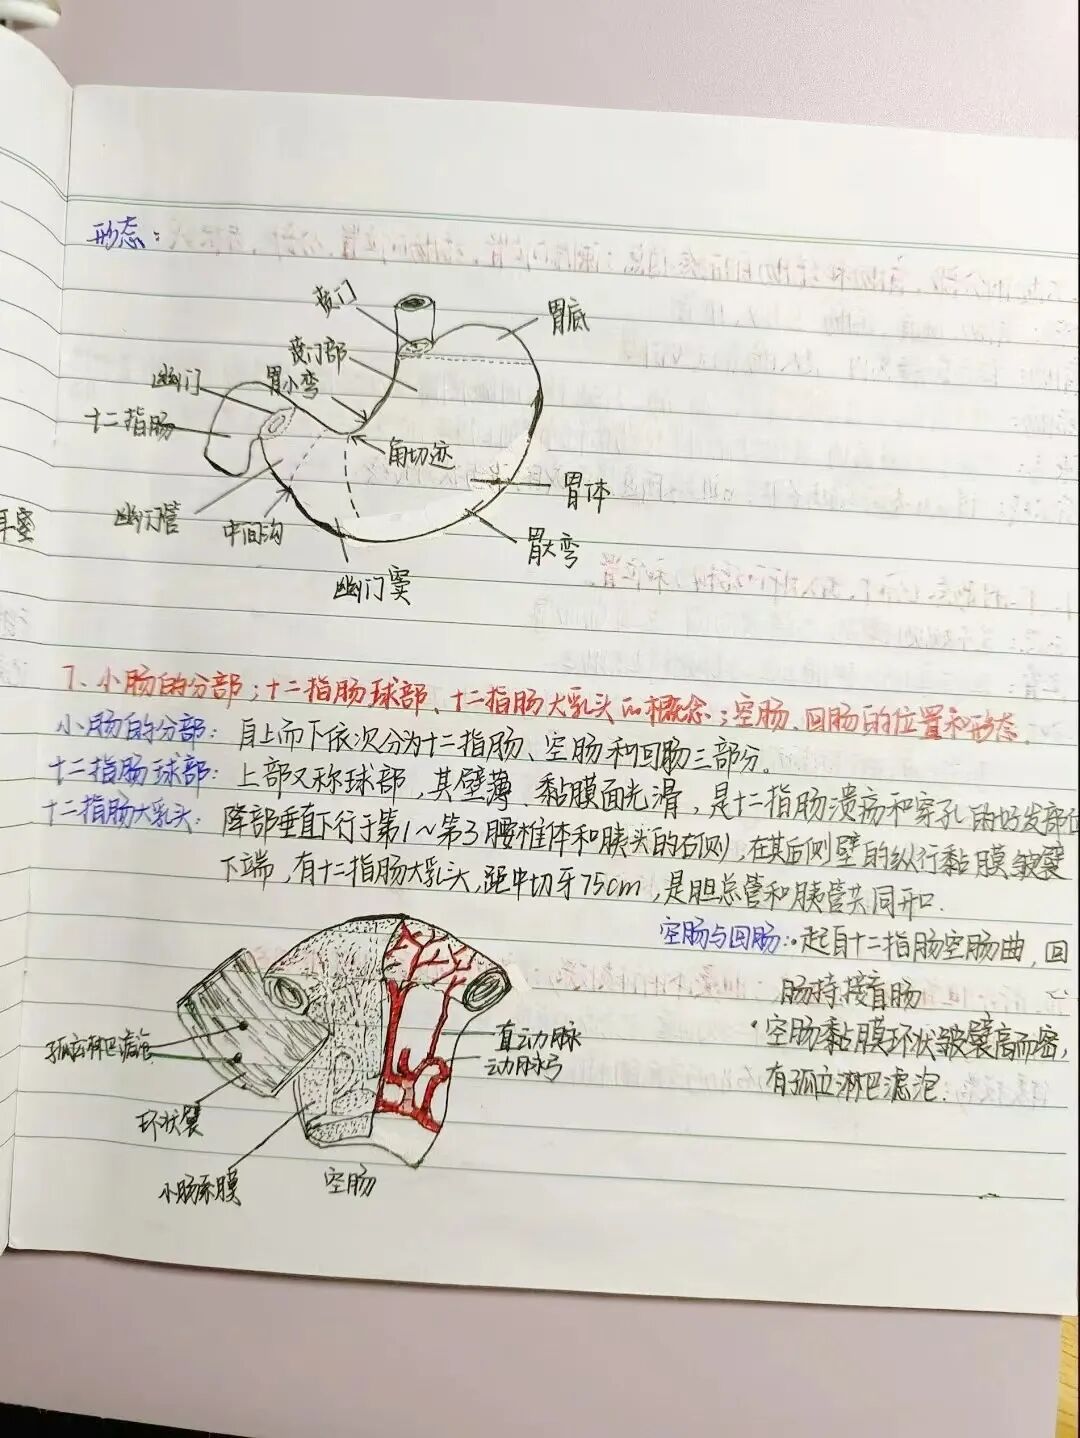 形态：
贲门
胃底
贲门部
胃小弯
幽门
十二指肠
角切迹
胃体
幽门管
中间沟
胃大弯
幽门窦
7、小肠的分部；十二指肠球部、十二指肠大乳头的概念；空肠、回肠的位置和形态.
小肠的分部：自上而下依次分为十二指肠、空肠和回肠三部分。
十二指肠球部：上部又称球部，其壁薄、黏膜面光滑，是十二指肠溃疡和穿孔的好发部位
十二指肠大乳头：降部垂直下行于第1～第3腰椎体和胰头的右侧，在其后侧壁的纵行黏膜皱襞
下端，有十二指肠大乳头，距中切牙75cm，是胆总管和胰管共同开口.
空肠与回肠：·起自十二指肠空肠曲，回
肠持接盲肠
·空肠黏膜环状皱襞高而密，
有孤立淋巴滤泡.
直动脉
动脉弓
孤立淋巴滤泡
环状襞
小肠系膜
空肠